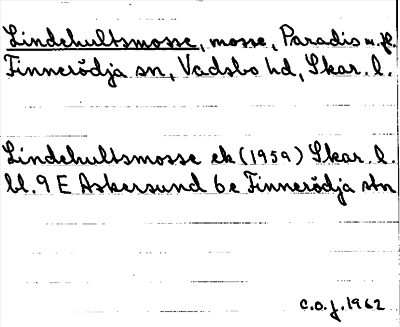 Lindehultsmosse, mosse, Paradis m. fl.
Finnerödja sn, Vadsbo hd, Skar. l.
Lindehultsmosse ek (1959) Skar. l.
bl. 9 E Askersund 6e Finnerödja stn
C.O.J. 1962